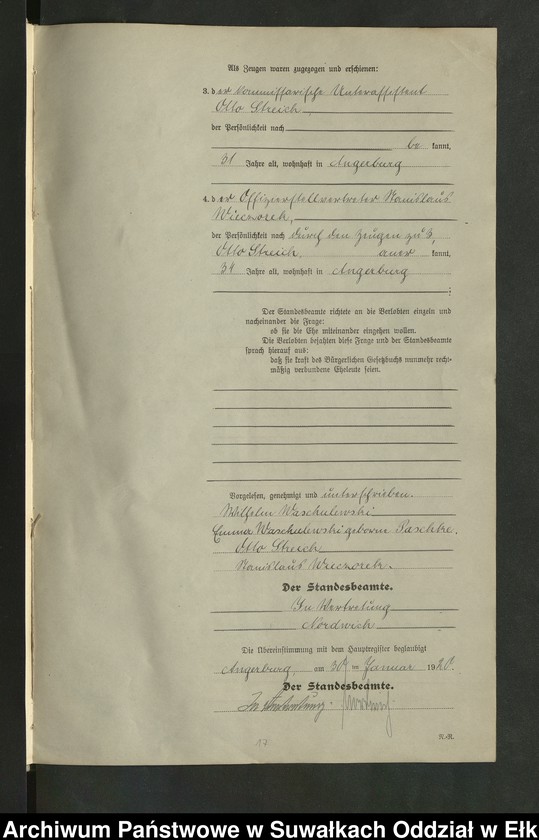 Als Zeugen waren zugezogen und erschienen:
3. der kommissarische Unterassistent
Otto Streich,
der Persönlichkeit nach
be kannt,
31 Jahre alt, wohnhaft in Angerburg
4. der Offizierstellvertreter Stanislaus
Wieczorek,
der Persönlichkeit nach durch den Zeugen zu 3,
Otto Streich, aner kannt,
34 Jahre alt, wohnhaft in Angerburg
Der Standesbeamte richtete an die Verlobten einzeln und
nacheinander die Frage:
ob sie die Ehe miteinander eingehen wollen.
Die Verlobten bejahten diese Frage und der Standesbeamte
sprach hierauf aus:
daß sie kraft des Bürgerlichen Gesetzbuchs nunmehr recht-
mäßig verbundene Eheleute seien.
Vorgelesen, genehmigt und unterschrieben.
Wilhelm Waschulewski
Emma Waschulewski geborne Paschke.
Otto Streich
Stanislaus Wieczorek.
Der Standesbeamte.
In Vertretung
Nordwich
Die Übereinstimmung mit dem Hauptregister beglaubigt
Angerburg, am 30 ten Januar 1920.
Der Standesbeamte.
In Vertretung.
17
N.-R.
Archiwum Państwowe w Suwałkach Oddział w Ełku